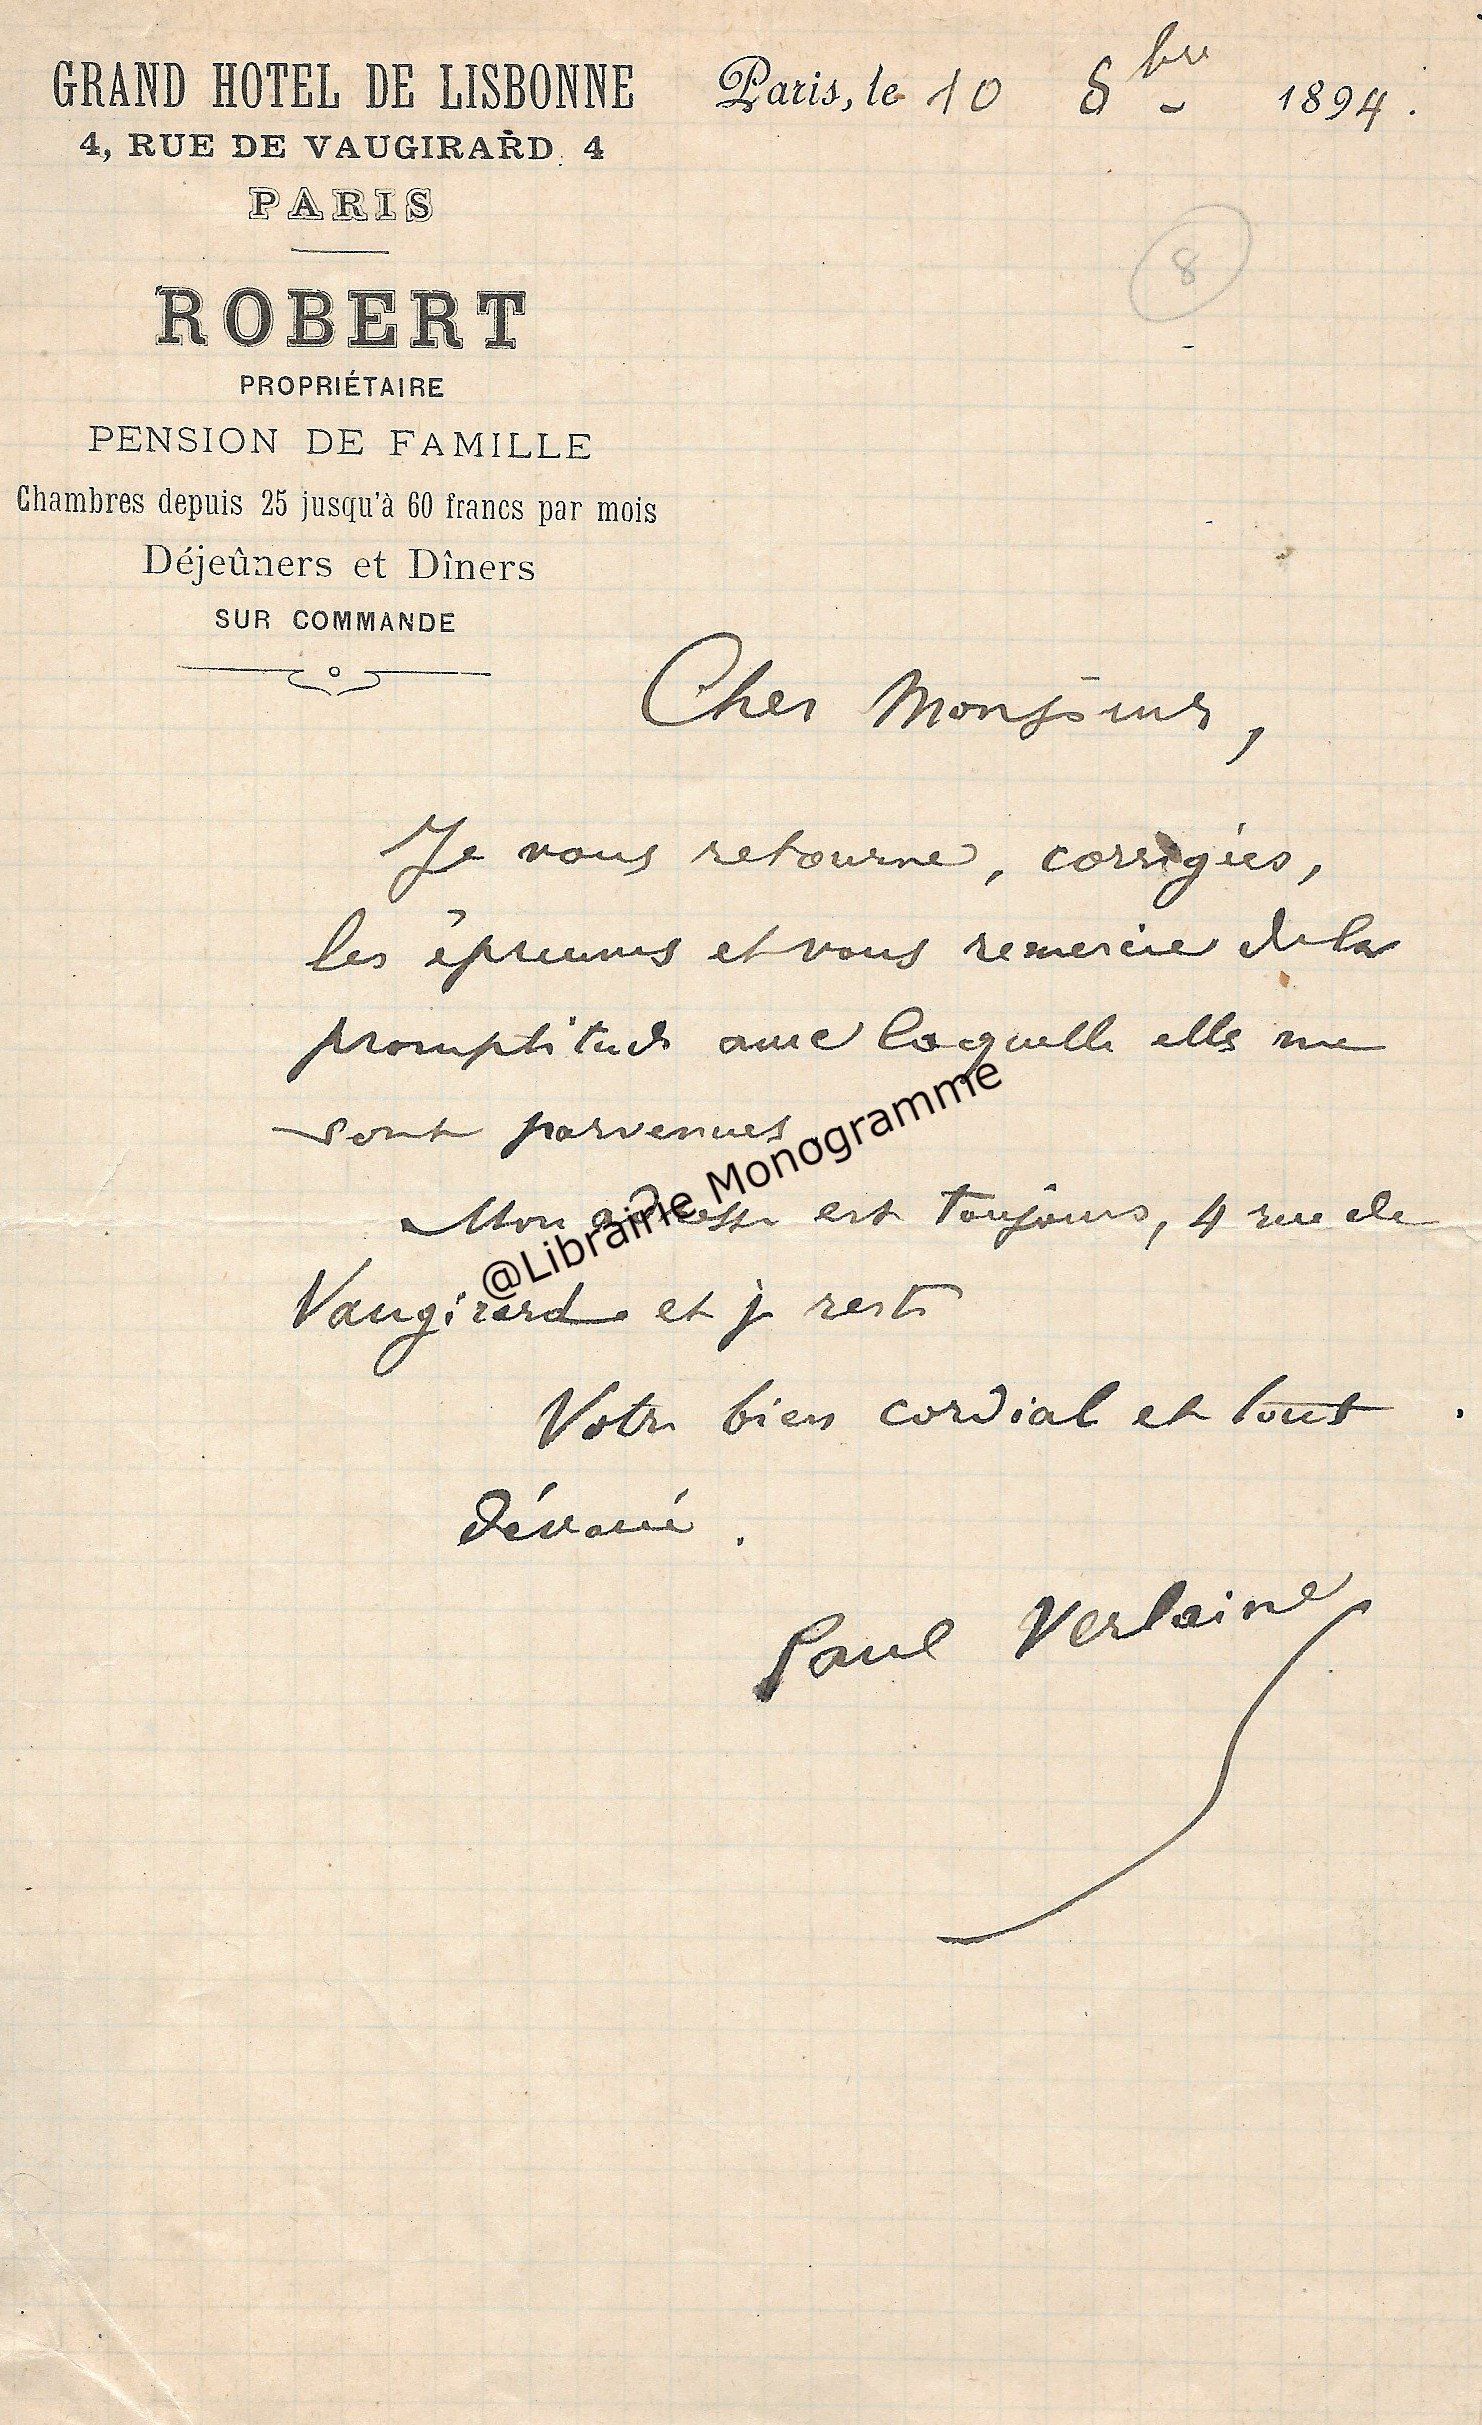 GRAND HOTEL DE LISBONNE
4, RUE DE VAUGIRARD, 4
PARIS
ROBERT
PROPRIÉTAIRE
PENSION DE FAMILLE
Chambres depuis 25 jusqu'à 60 francs par mois
Déjeûners et Dîners
SUR COMMANDE
Paris, le 10 8bre 1894.
8
Cher Monsieur,
Je vous retourne, corrigées,
les épreuves et vous remercie de la
promptitude avec laquelle elles me
sont parvenues.
Mon adresse est toujours, 4 rue de
Vaugirard et je reste
Votre bien cordial et tout
dévoué.
Paul Verlaine
@Librairie Monogramme